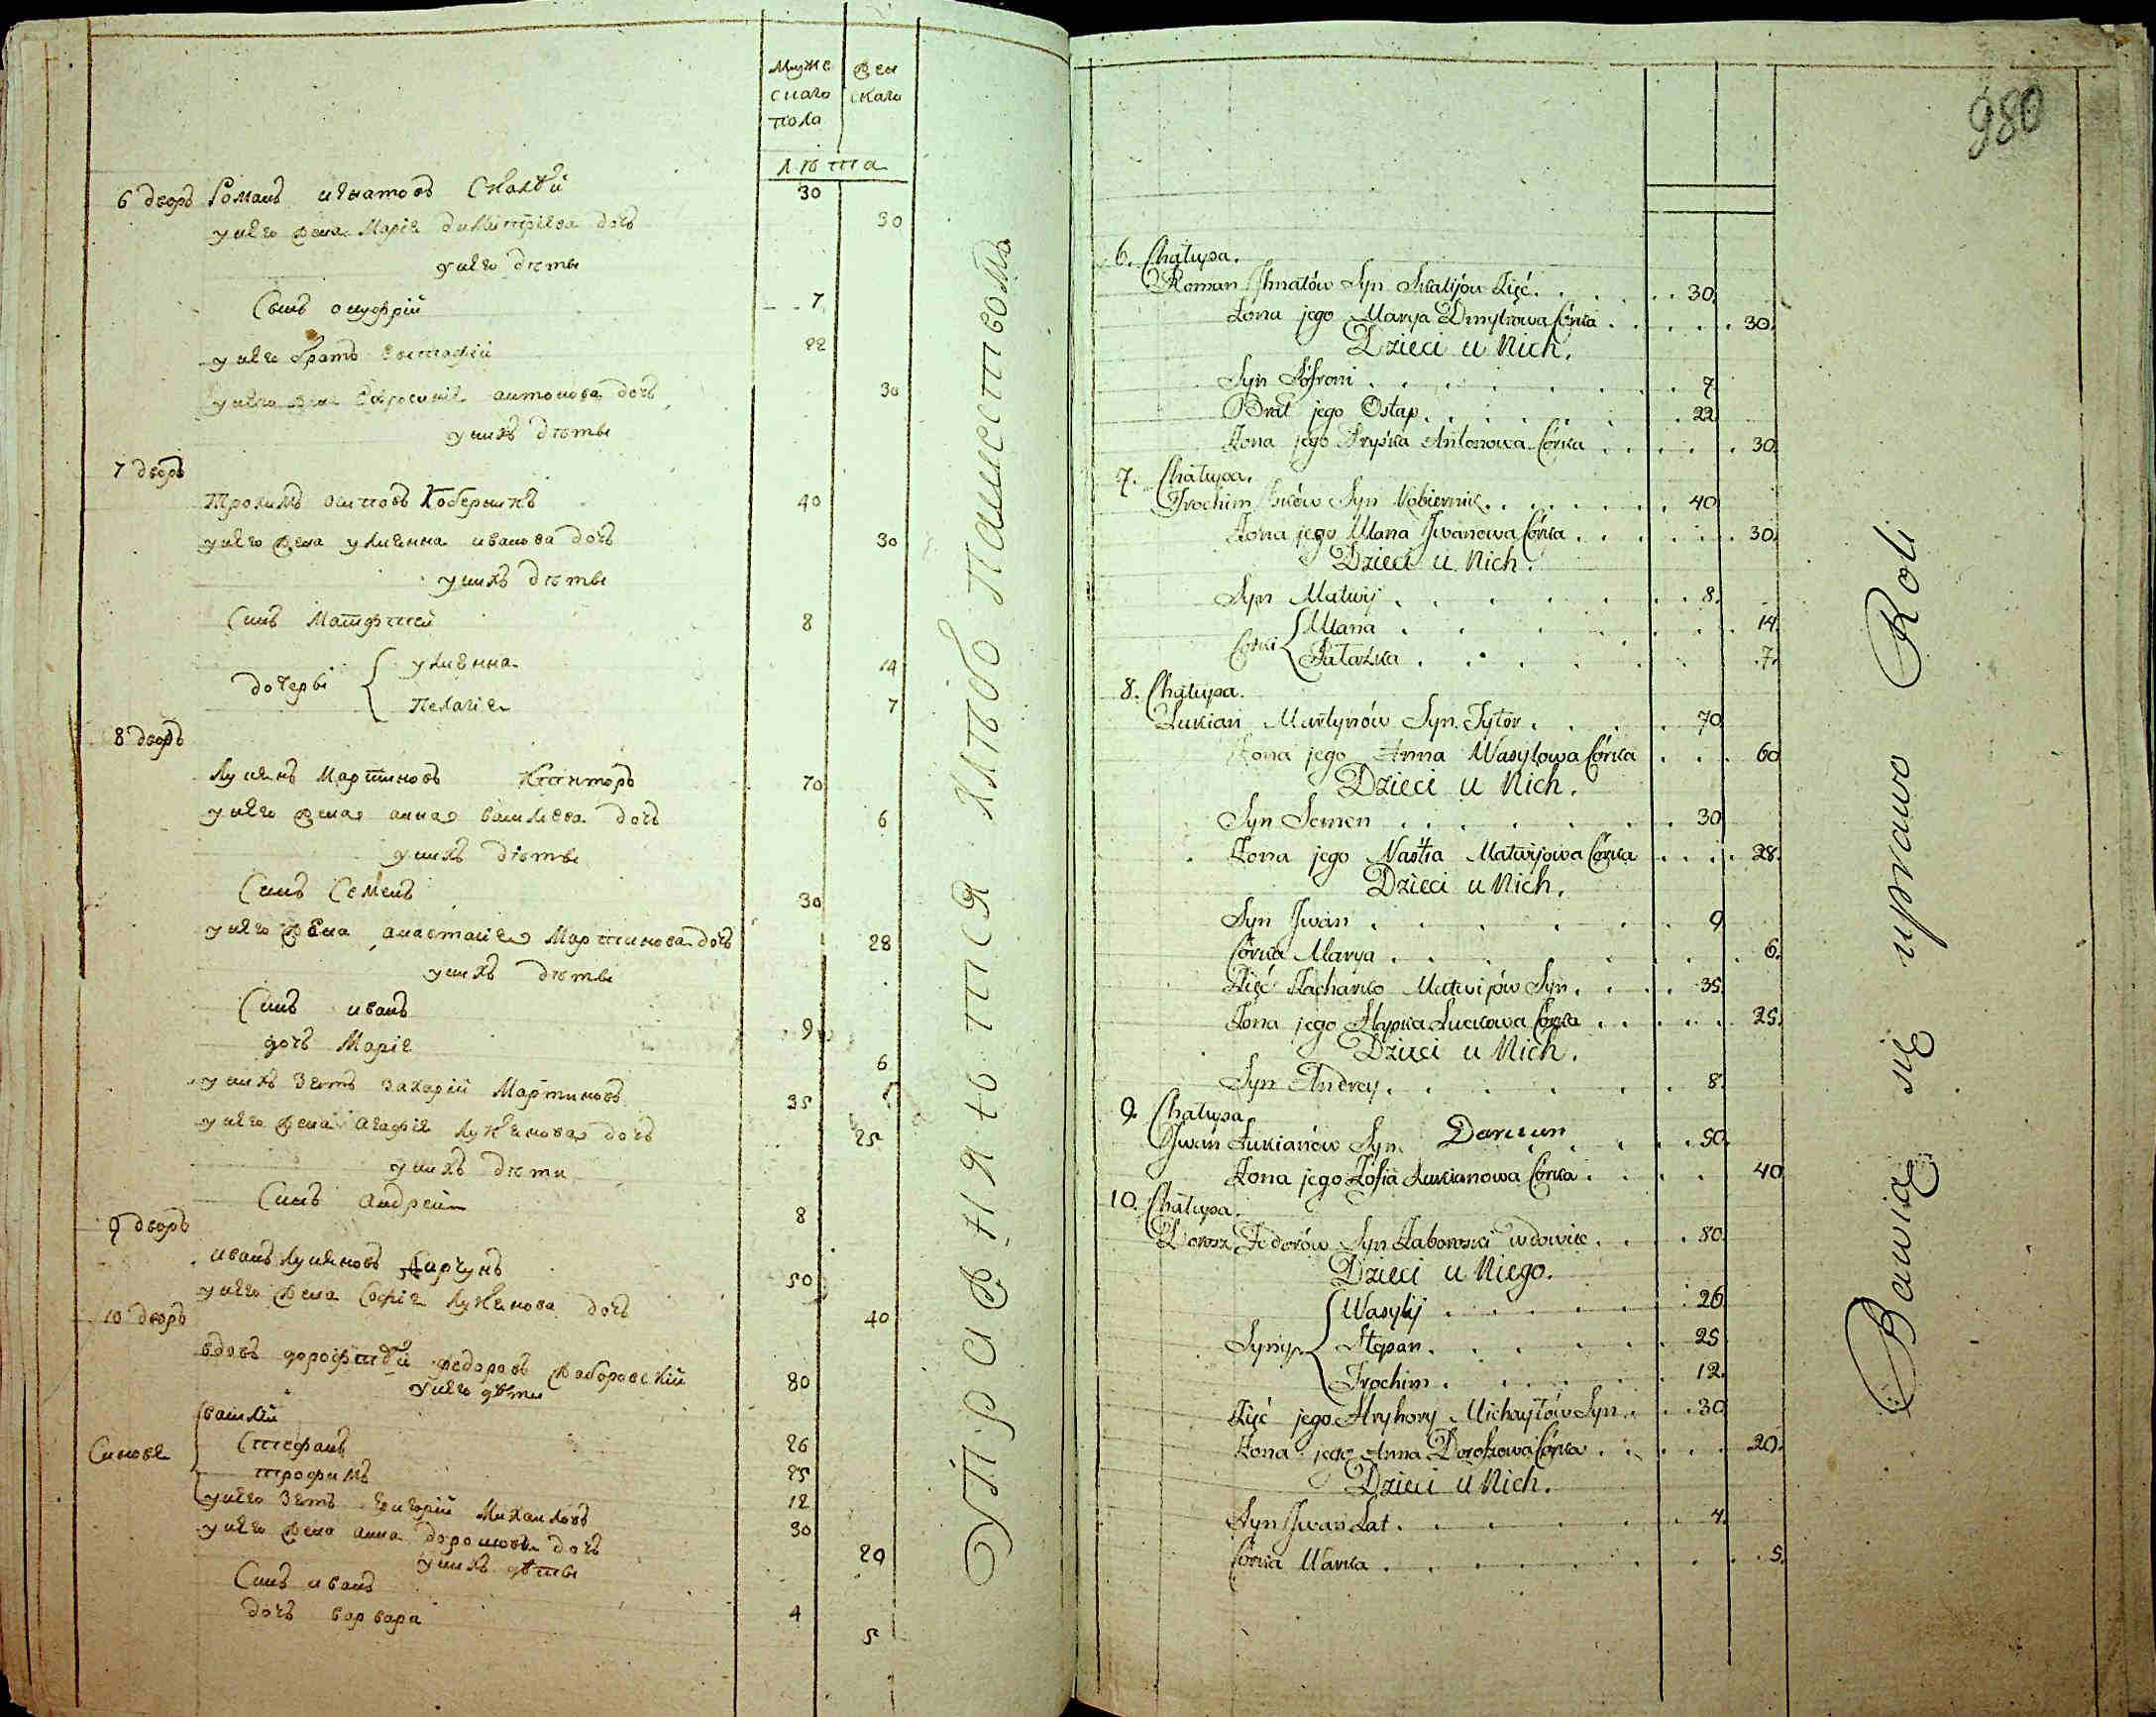 Муже
скаго
пола
Жен
скаго
лѣта
6 дворъ Романъ игнатовъ 30
у него жена Марія димитріева дочъ 30
у него дѣтѣ
Сынъ онуфрій 7
у него братъ евстафій 22
у него жена Ефросинія антонова дочъ 30
у нихъ дѣтѣ
7 дворъ
Трохимъ осиповъ Коберникъ 40
у него жена улиянна иванова дочъ 30
у нихъ дѣтѣ
Синъ Матфтей 8
дочерѣ { улиянна 14
пелагия 7
8 дворъ
Лукянъ Мартиновъ Ктиторъ 70
у него жена анна василева дочъ 6
у нихъ дѣтѣ
Синъ Семенъ 30
у него жена анастасия Мартинова дочъ 28
у нихъ дѣтѣ
Синъ иванъ 9
дочъ Марія 6
у нихъ зять захарій Мартиновъ 35
у него жена агафия лукянова дочъ 25
у нихъ дѣти
Синъ андрей 8
9 дворъ
иванъ лукяновъ Дарчунъ 50
у него жена Софія лукянова дочъ 40
10 дворъ
вдовъ дорофтей федоровъ Жаборовскій 80
у него дѣти
Синовя { василій 26
Стефанъ 25
трофимъ 12
у него зять григорій Михаиловъ 30
у него жена анна дорошова дочъ 20
у нихъ дѣтѣ
Синъ иванъ 4
дочъ варвара 5
Упражняются хлѣбопашествомъ
980
6. Chałupa.
Roman Ihnatów Syn Skalijów Zięć . . . 30
Żona jego Marya Dmytrowa Córka . . . 30.
Dzieci u Nich.
Syn Zofroni . . . 7
Brat jego Ostap . . . 22
Żona jego Pryśka Antonowa Córka . . . 30
7. Chałupa.
Trochim Syn Kobiernik . . . 40
Żona jego Ulana Jwanowa Córka . . . 30.
Dzieci u Nich.
Syn Matwij . . . 8.
Córki { Ulana . . . 14.
Pałażka . . . 7.
8. Chałupa.
Łukian Martynów Syn Tytor . . . 70
Żona jego Anna Wasylowa Córka . . . 60
Dzieci u Nich.
Syn Semen . . . 30
Żona jego Nastia Matwijowa Córka . . . 28.
Dzieci u Nich.
Syn Jwan . . . 9
Córka Marya . . . 6.
Zięć Zacharko Matwijów Syn . . . 35
Żona jego Hapka Łuckowa Córka . . . 25.
Dzieci u Nich.
Syn Andrey . . . 8.
9. Chałupa
Jwan Łukianów Syn Darczun . . . 50.
Żona jego Zofia Łukianowa Córka . . . 40
10. Chałupa.
Dorosz Fedorów Syn Zaborowski wdowiec . . . 80
Dzieci u Niego.
Syny { Wasylij . . . 26
Stepan . . . 25
Trochim . . . 12.
Zięć jego Hryhory Michayłów Syn . . . 30
Żona jego Anna Doroszowa Córka . . . 20.
Dzieci u Nich.
Syn Jwan Lat . . . 4.
Córka Warka . . . 5.
Bawią się uprawo Roli